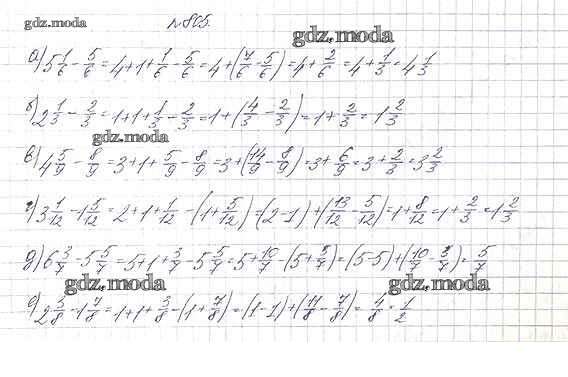 gdz.moda
№805.
gdz.moda
а) 5 1/6 - 5/6 = 4+1+1/6 - 5/6 = 4+(7/6 - 5/6) = 4+2/6 = 4+1/3 = 4 1/3
б) 2 1/3 - 2/3 = 1+1+1/3 - 2/3 = 1+(4/3 - 2/3) = 1+2/3 = 1 2/3
gdz.moda
в) 4 5/9 - 8/9 = 3+1+5/9 - 8/9 = 3+(14/9 - 8/9) = 3+6/9 = 3+2/3 = 3 2/3
г) 3 1/12 - 1 5/12 = 2+1+1/12 - (1+5/12) = (2-1)+(13/12 - 5/12) = 1+8/12 = 1+2/3 = 1 2/3
д) 6 3/7 - 5 5/7 = 5+1+3/7 - 5 5/7 = 5+10/7 - (5+5/7) = (5-5)+(10/7 - 5/7) = 5/7
gdz.moda gdz.moda
е) 2 3/8 - 1 7/8 = 1+1+3/8 - (1+7/8) = (1-1)+(11/8 - 7/8) = 4/8 = 1/2